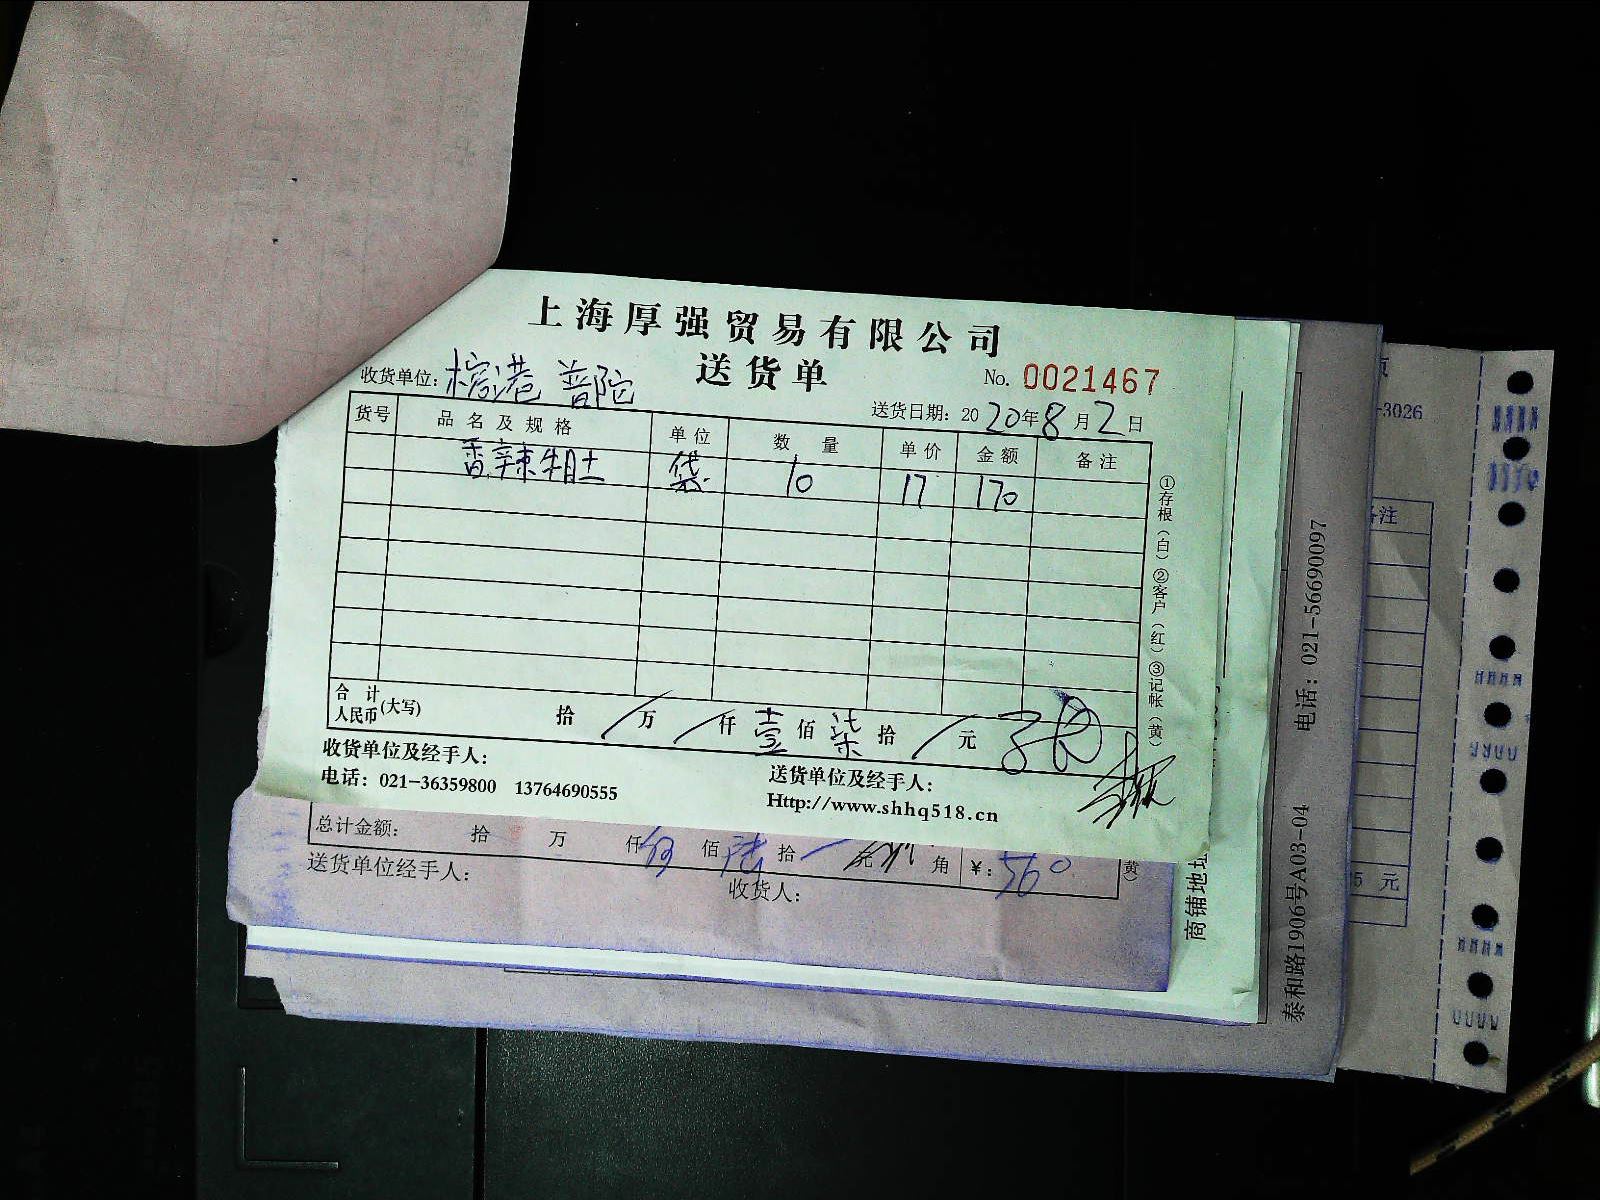 上海厚强贸易有限公司
送货单
No. 0021467
收货单位: 港 普陀
送货日期: 2020年8月2日
货号 品名及规格 单位 数量 单价 金额 备注
香辣 袋 10 17 170
合计
人民币(大写) 拾 / 万 / 仟 壹 佰 柒 拾 / 元
收货单位及经手人:
电话: 021-36359800 13764690555
送货单位及经手人:
Http://www.shhq518.cn
①存根(白)②客户(红)③记帐(黄)
总计金额: 拾 万 仟 伍 佰 陆 拾 元 角 ¥: 560
送货单位经手人:
收货人:
黄)
商铺地址
泰和路1906号A03-04 电话: 021-56690097
-3026
备注
5 元